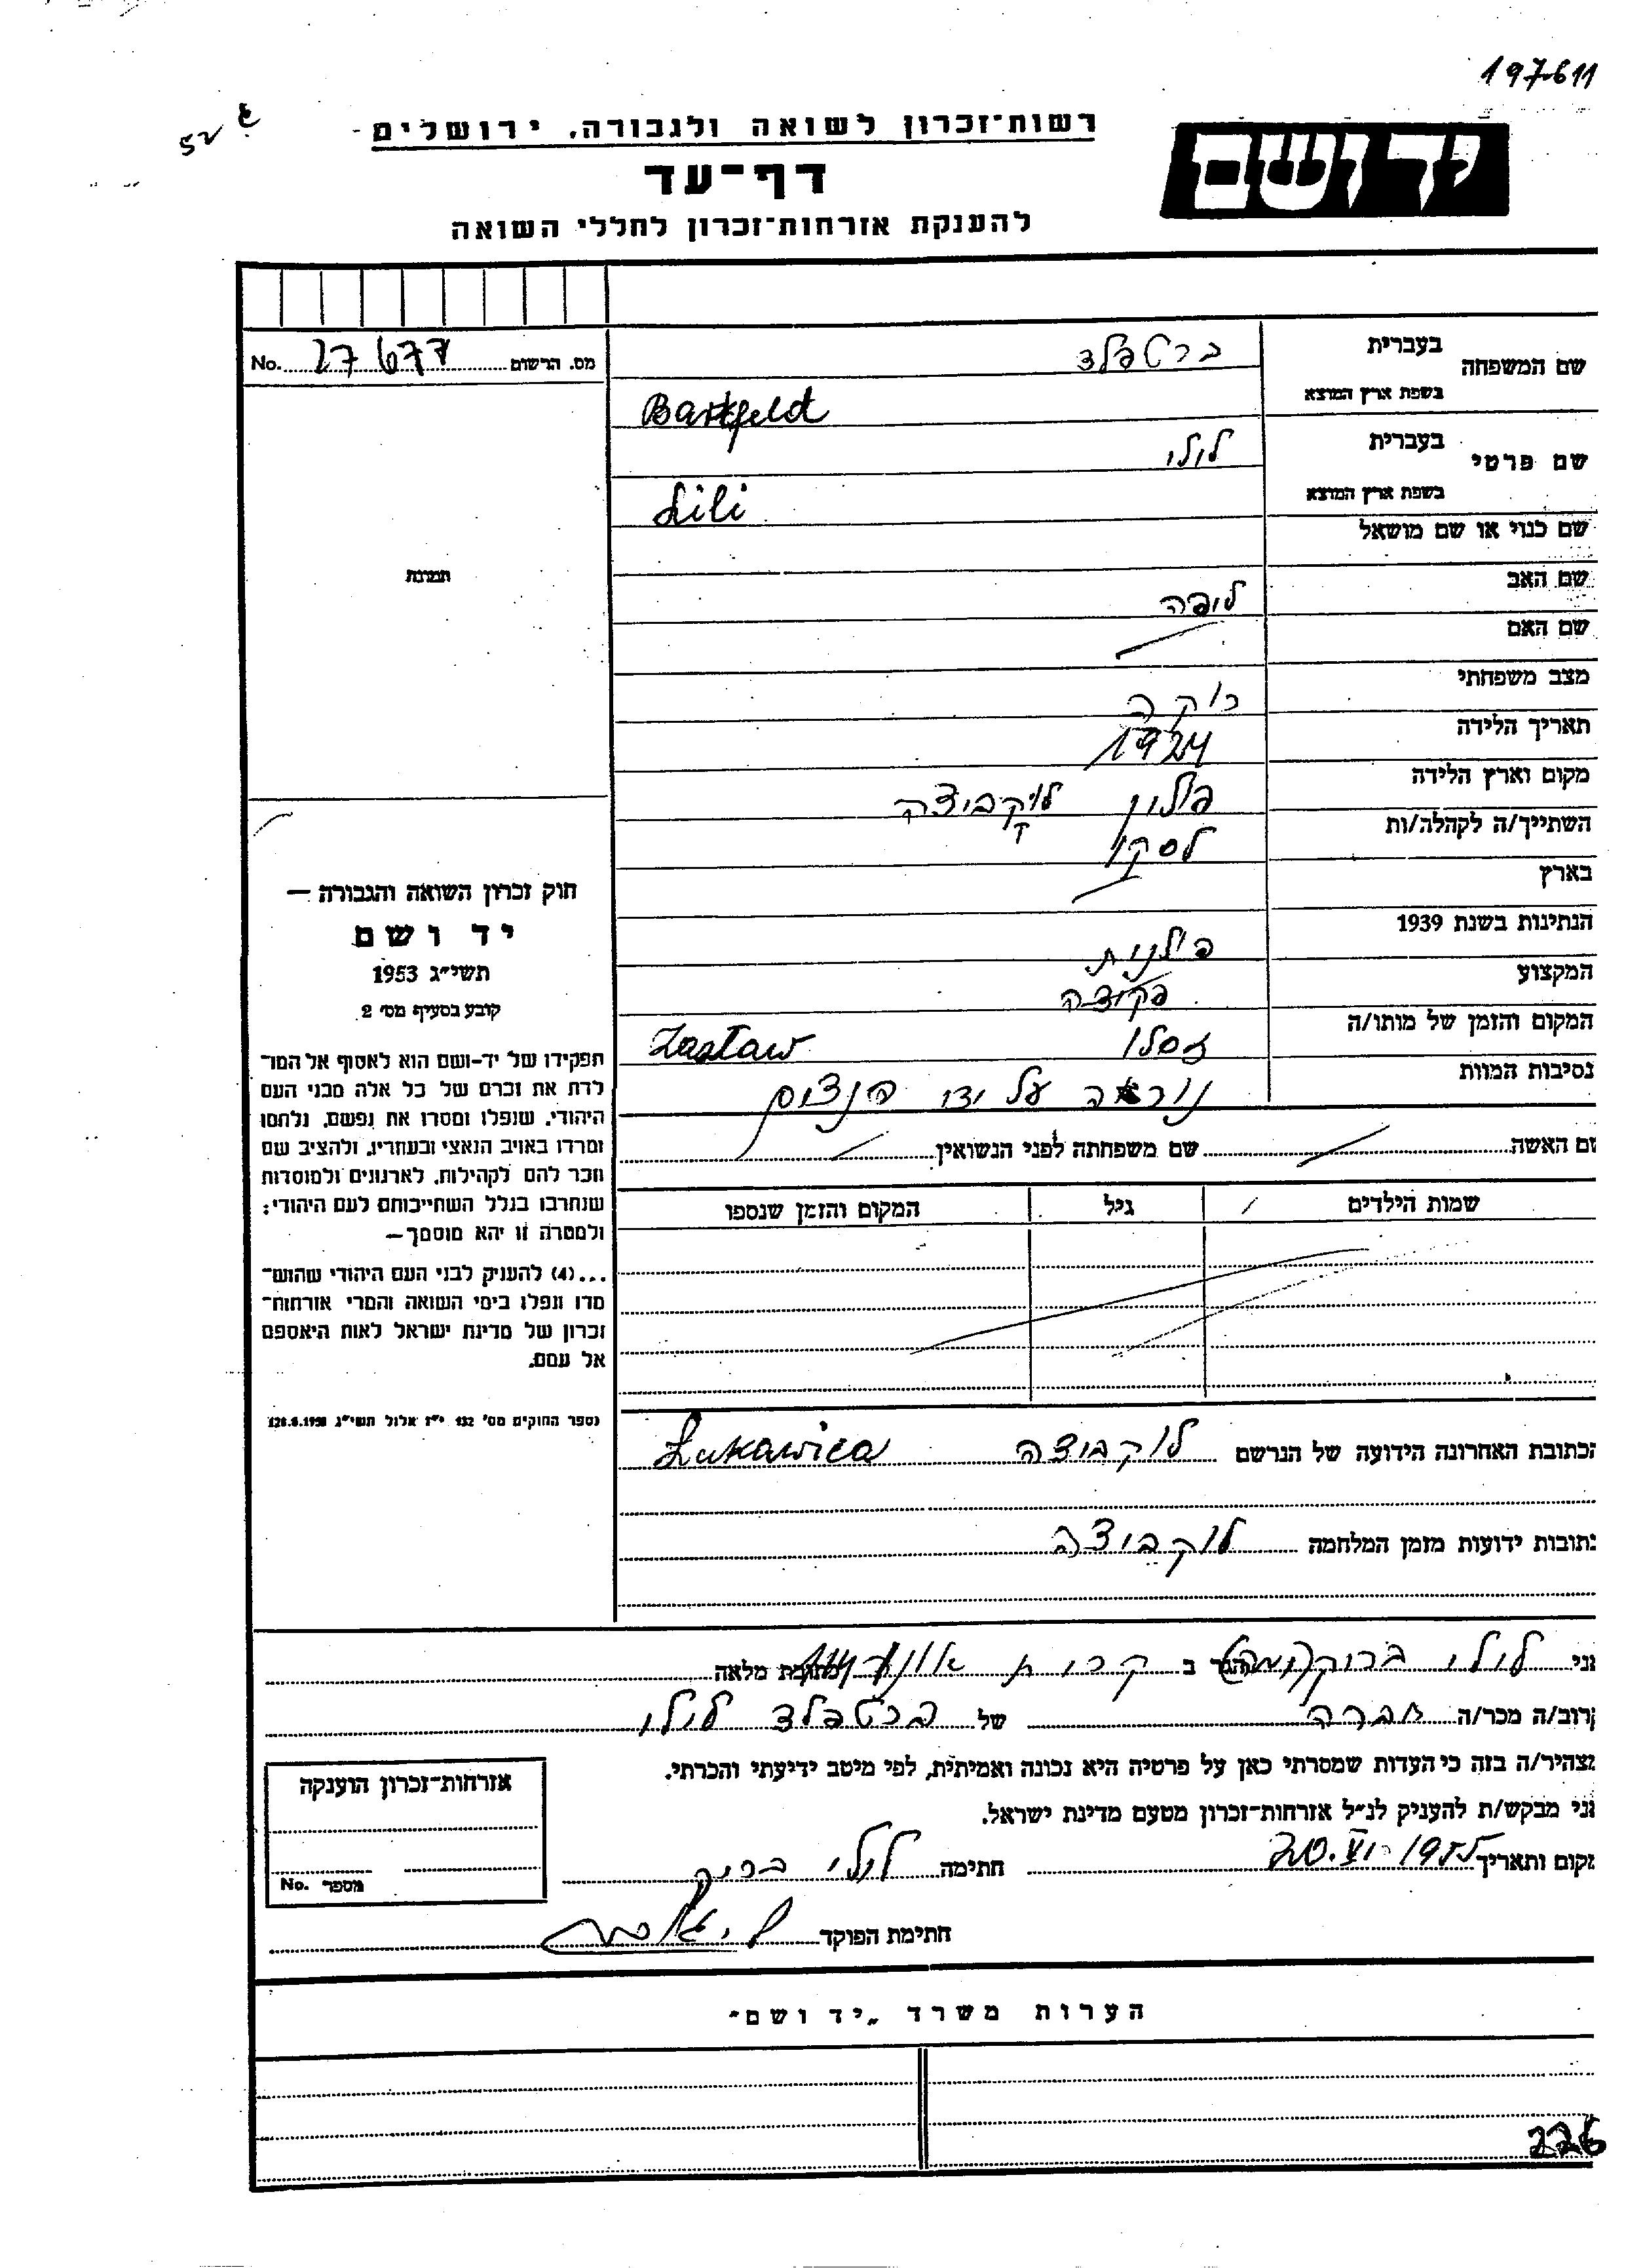 197611
רשות־זכרון לשואה ולגבורה, ירושלים
יד ושם
דף־עד
להענקת אזרחות־זכרון לחללי השואה
מס. הרשום 27677 No.
שם המשפחה
בעברית ברטפלד
בשפת ארץ המוצא Bartfeld
שם פרטי
בעברית לילי
בשפת ארץ המוצא Lili
שם כנוי או שם מושאל
תמונה
שם האב ליפה
שם האם
מצב משפחתי רוקה
תאריך הלידה 1924
מקום וארץ הלידה פולין לוקביצה
השתייך/ה לקהלה/ות לסקו
בארץ
הנתינות בשנת 1939 פולנית
המקצוע פקידה
המקום והזמן של מותו/ה זסלו Zasław
נסיבות המוות נורתה על ידי הנצים
שם האשה שם משפחתה לפני הנשואין
שמות הילדים גיל המקום והזמן שנספו
חוק זכרון השואה והגבורה —
יד ושם
תשי״ג 1953
קובע בסעיף מס׳ 2
תפקידו של יד-ושם הוא לאסוף אל המו־
לדת את זכרם של כל אלה מבני העם
היהודי, שנפלו ומסרו את נפשם, נלחמו
ומרדו באויב הנאצי ובעוזריו, ולהציב שם
וזכר להם לקהילות, לארגונים ולמוסדות
שנחרבו בגלל השתייכותם לעם היהודי;
ולמטרה זו יהא מוסמך—
...(4) להעניק לבני העם היהודי שהוש־
מדו ונפלו בימי השואה והמרי אזרחות־
זכרון של מדינת ישראל לאות היאספם
אל עמם.
נספר החוקים מס׳ 132 י״ז אלול תשי״ג
הכתובת האחרונה הידועה של הנרשם לוקביצה Łukawica
כתובות ידועות מזמן המלחמה לוקביצה
אני לילי הגר ב קרית אונו כתובת מלאה
קרוב/ה מכר/ה חברה של ברטפלד לילי
מצהיר/ה בזה כי העדות שמסרתי כאן על פרטיה היא נכונה ואמיתית, לפי מיטב ידיעתי והכרתי.
אני מבקש/ת להעניק לנ״ל אזרחות־זכרון מטעם מדינת ישראל.
מקום ותאריך 20.VI.1955 חתימה לילי ברוק
חתימת הפוקד
אזרחות־זכרון הוענקה
מספר No.
הערות משרד „יד ושם״
226